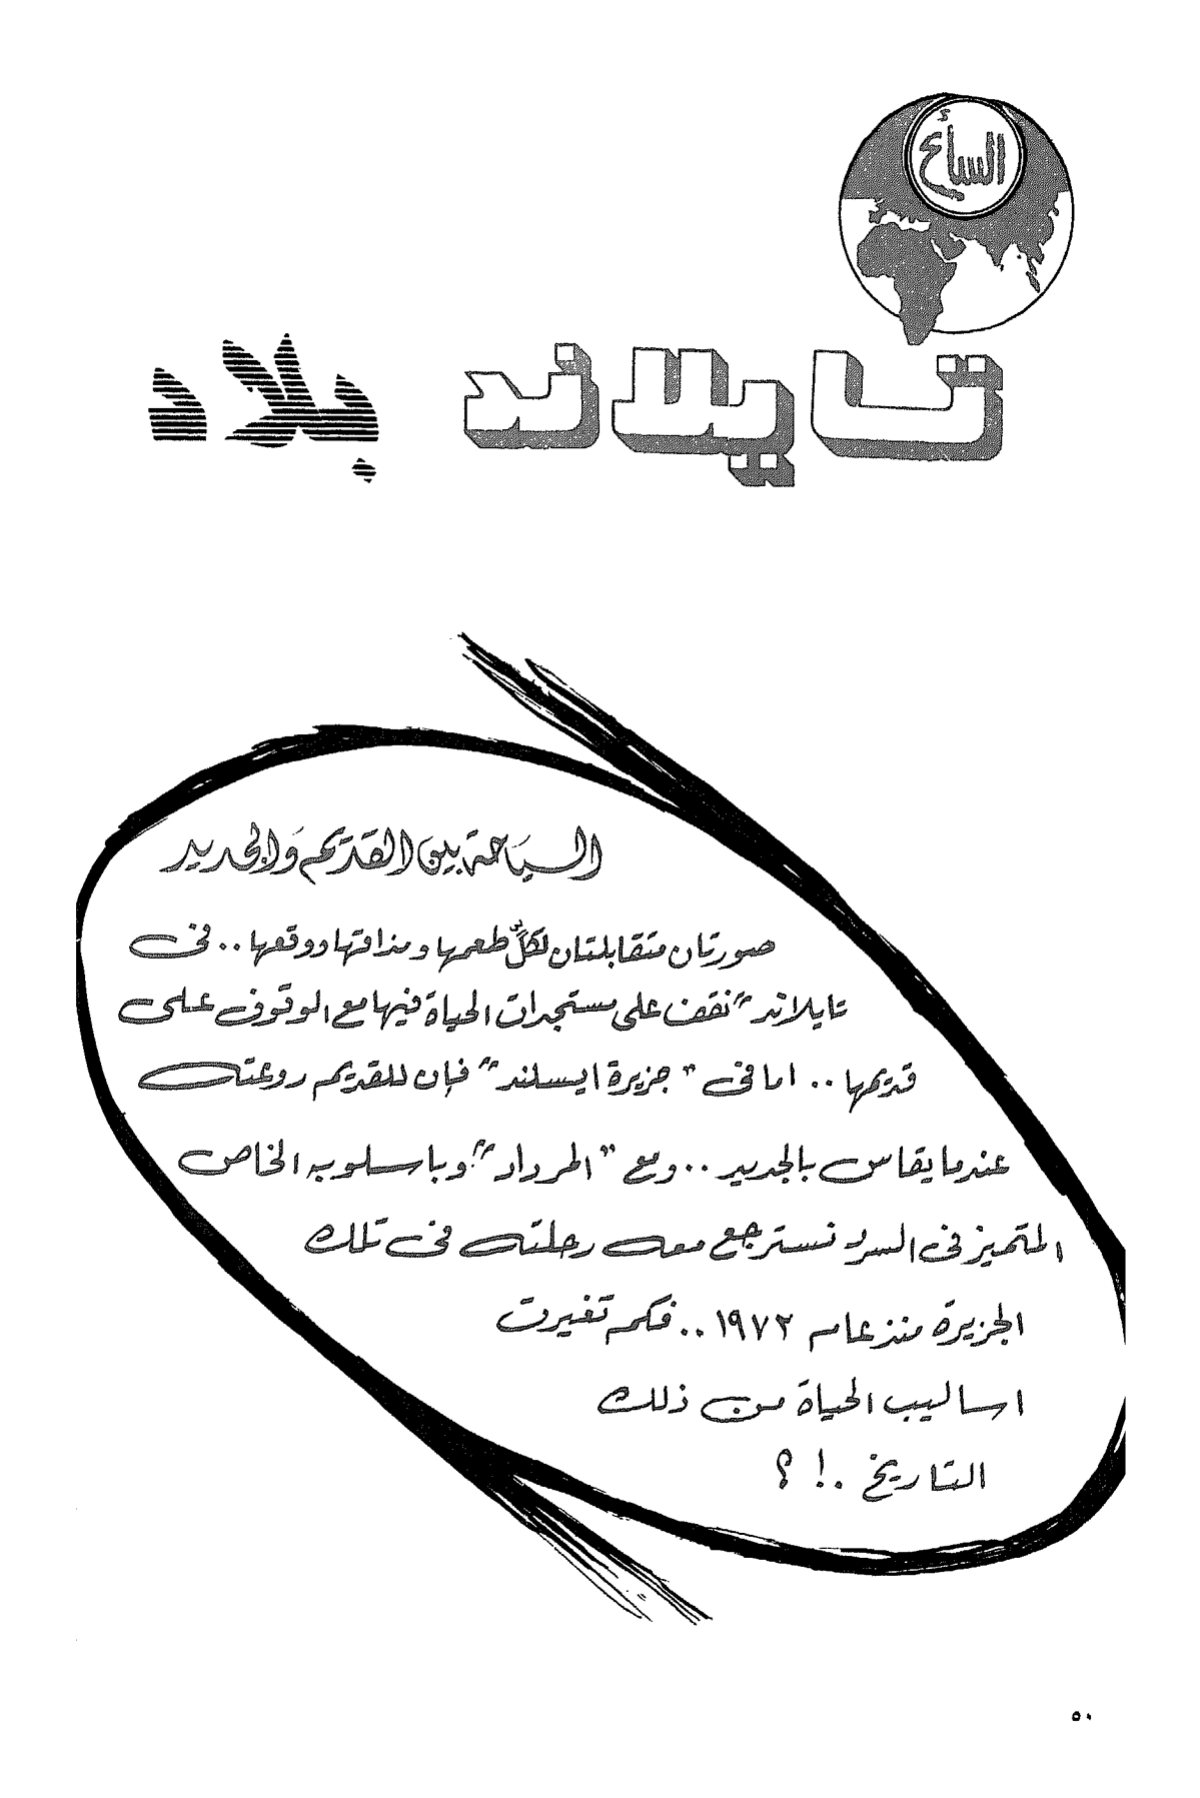 السائح
تايلاند بلاد
السياحة بين القديم والجديد
صورتان متقابلتان لكلٌ طعمها ومذاقها ووقعها .. فى
تايلاند" نقف على مستجدات الحياة فيها مع الوقوف على
قديمها .. اما فى " جزيرة ايسلند" فإن للقديم روعته
عندما يقاس بالجديد .. ومع "المرداد" وباسلوبه الخاص
المتميز فى السرد نسترجع معه رحلته فى تلك
الجزيرة منذ عام ١٩٧٢ .. فكم تغيرت
اساليب الحياة من ذلك
التاريخ .! ؟
٥٠